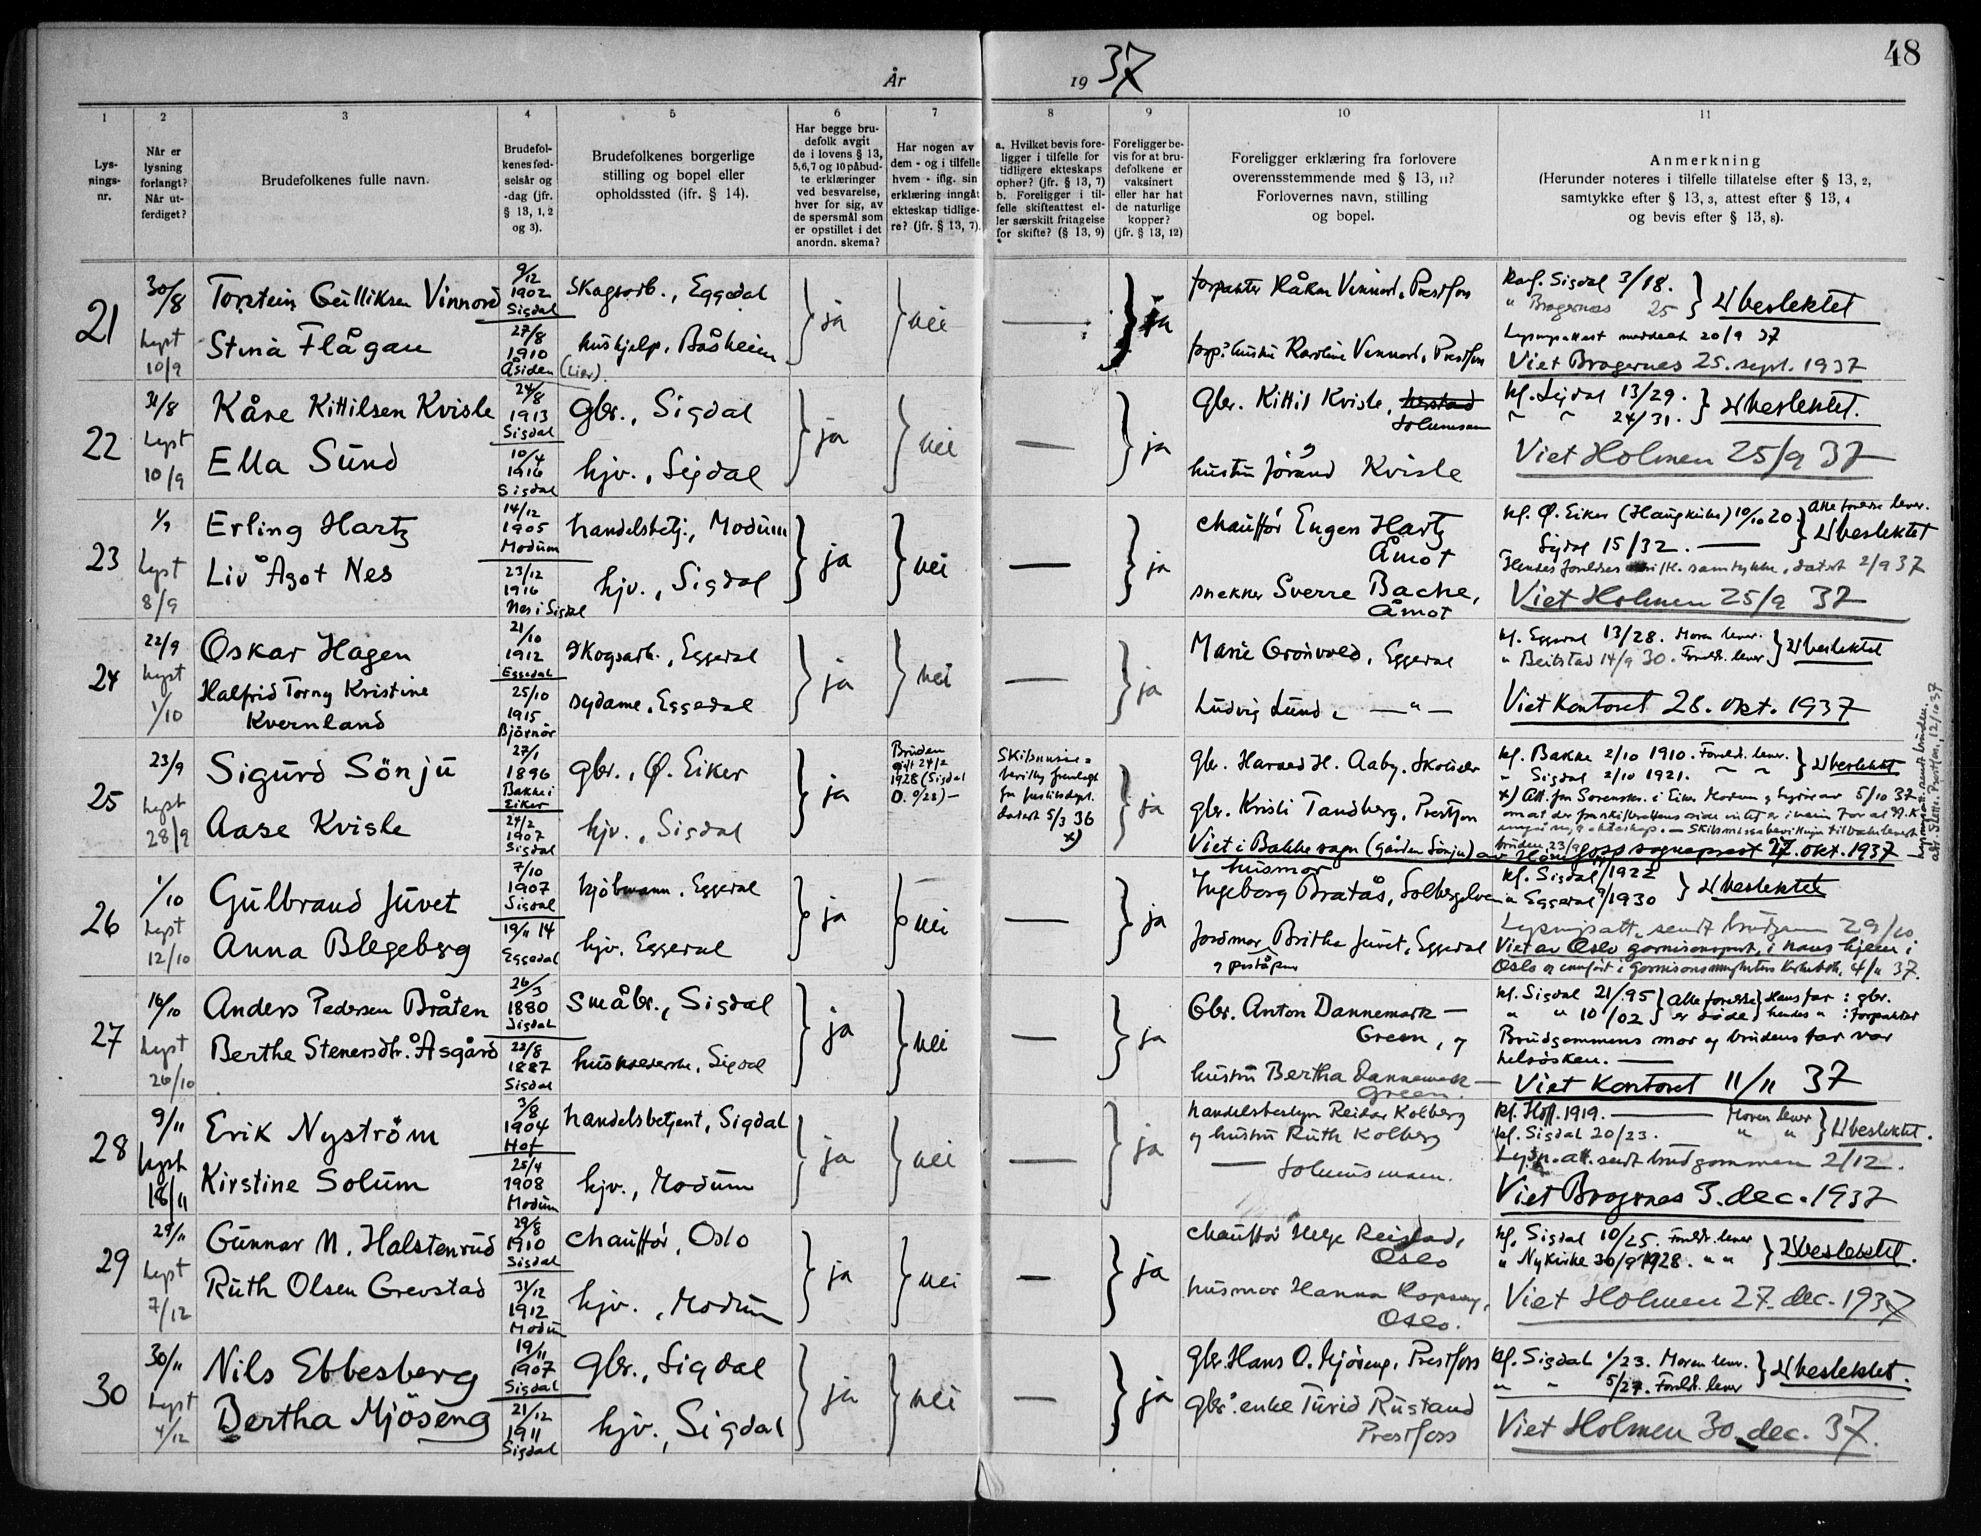 48
År 1937
1 2 3 4 5 6 7 8 9 10 11
Lysningsnr.
Når er lysning forlangt? Når utferdiget?
Brudefolkenes fulle navn.
Brudefolkenes fødselsår og -dag (jfr. § 13, 1, 2 og 3).
Brudefolkenes borgerlige stilling og bopel eller opholdssted (jfr. § 14).
Har begge brudefolk avgit de i lovens § 13, 5,6,7 og 10 påbudte erklæringer ved besvarelse, hver for sig, av de spørsmål som er opstillet i det anordn. skema?
Har nogen av dem - og i tilfelle hvem - iflg. sin erklæring inngått ekteskap tidligere? (jfr. § 13, 7).
a. Hvilket bevis foreligger i tilfelle for tidligere ekteskaps ophør? (jfr. § 13, 7) b. Foreligger i tilfelle skifteattest eller særskilt fritagelse for skifte? (§ 13, 9)
Foreligger bevis for at brudefolkene er vaksinert eller har hat de naturlige kopper? (jfr. § 13, 12)
Foreligger erklæring fra forlovere overensstemmende med § 13, 11? Forlovernes navn, stilling og bopel.
Anmerkning (Herunder noteres i tilfelle tillatelse efter § 13, 2, samtykke efter § 13, 3, attest efter § 13, 4 og bevis efter § 13, 8).
21 30/8 Torstein Gulliksen Vinnord 9/12 1902 Sigdal Skogsarb., Eggedal ja nei — ja forpakter Håkon Vinnord, Prestfoss Konf. Sigdal 3/18.
" Bragernes 25 } beslektet
lyst 10/9 Stina Flågan 27/8 1910 Åsiden (Lier) hushjelp, Båsheim Karoline Vinnord, Prestfoss
20/9 37
Viet Bragernes 25. sept. 1937
22 31/8 Kåre Kittilsen Kvisle 24/8 1913 Sigdal gbr., Sigdal ja nei — ja Gbr. Kittil Kvisle, Solumsmoen kf. Sigdal 13/29.
" " 24/31. } beslektet.
lyst 10/9 Ella Sund 10/4 1916 Sigdal hjv., Sigdal hustru Jörånd Kvisle Viet Holmen 25/9 37
23 1/9 Erling Hartz 14/12 1905 Modum handelsbetj., Modum ja nei — ja chauffør Eugen Hartz Åmot kf. Ø. Eiker (Haug kirke) 10/10 20
Sigdal 15/32. — } beslektet
lyst 8/9 Liv Ågot Nes 23/12 1916 Nes i Sigdal hjv., Sigdal snekker Sverre Bache, Åmot Hendes foreldres skriftl. samtykke, datert 2/9 37
Viet Holmen 25/9 37
24 22/9 Oskar Hagen 21/10 1912 Eggedal Skogsarb., Eggedal ja nei — ja Marie Grönvold, Eggedal kf. Eggedal 13/28. Moren lever.
" Beitstad 14/9 30. Foreldr. lever } beslektet
lyst 1/10 Halfrid Torny Kristine Kvernland 25/10 1915 Björnör sydame, Eggedal Ludvig Lund, — " — Viet Kontoret 28. okt. 1937
25 23/9 Sigurd Sönju 27/1 1896 Bakke i Eiker gbr., Ø. Eiker ja Bruden gift 24/2 1928 (Sigdal ja gbr. Harald H. Aaby, Skotselv kf. Bakke 2/10 1910. Foreld. lever.
" Sigdal 2/10 1921. " " } beslektet
datert 5/3 36 x)
lyst 28/9 Aase Kvisle 24/2 1907 Sigdal hjv., Sigdal gbr. Kristi Tandberg, Prestfoss
Viet i Bakke sogn (gården Sönju) av sogneprest 27. okt. 1937
26 1/10 Gulbrand Juvet 7/10 1907 Sigdal kjöbmann, Eggedal ja nei — ja husmor Ingeborg Bratås, Solbergelven kf. Sigdal 1922
" Eggedal 1930 } beslektet
lyst 12/10 Anna Blegeberg 19/11 14 Eggedal hjv. Eggedal Jordmor Brithe Juvet, Eggedal Lysningsatt. sendt brudgommen 29/10
Viet av Oslo garnisonsprest, i hans hjem i
Oslo og innført i Garnisonsmenighetens kirkebok, 4/11 37.
27 16/10 Anders Pedersen Bråten 26/3 1880 Sigdal småbr., Sigdal ja nei — ja Gbr. Anton Dannemark — Green, og kf. Sigdal 21/95 } alle foreldre } Hans far : gbr.
" " 10/02 } er døde } hendes " : forpakter
lyst 26/10 Berthe Stenersdtr. Åsgård 22/8 1887 Sigdal Sigdal hustru Bertha Dannemark — Green. Brudgommens mor og brudens far var
helsøsken. —
Viet Kontoret 11/11 37
28 9/11 Erik Nyström 3/8 1904 Hof handelsbetjent, Sigdal ja nei — ja handelsbestyrer Reidar Kolberg
og hustru Ruth Kolberg
— Solumsmoen. kf. Hoff. 1919. — Moren lever
kf. Sigdal 20/23. " " } beslektet.
lyst 18/11 Kirstine Solum 25/4 1908 Modum hjv., Modum Lysn.att. sendt brudgommen 2/12.
Viet Bragernes 3. dec. 1937
29 29/11 Gunnar M. Halstenrud 29/8 1910 Sigdal chauffør, Oslo ja nei — ja chauffør Helge Reistad, Oslo kf. Sigdal 10/25. Foreldr. lever
" Nykirke 30/9 1928. " " } beslektet.
lyst 7/12 Ruth Olsen Grevstad 31/12 1912 Modum hjv., Modum husmor Hanna Oslo. Viet Holmen 27. dec. 1937
30 30/11 Nils Ebbesberg 19/11 1907 Sigdal gbr., Sigdal ja nei — ja gbr. Hans O. Mjöseng, Prestfoss kf. Sigdal 1/23. Moren lever.
" " 5/27. Foreldr. lever } beslektet.
lyst 4/12 Bertha Mjöseng 21/12 1911 Sigdal hjv., Sigdal gbr. enke Turid Rustand Prestfoss Viet Holmen 30. dec. 37.